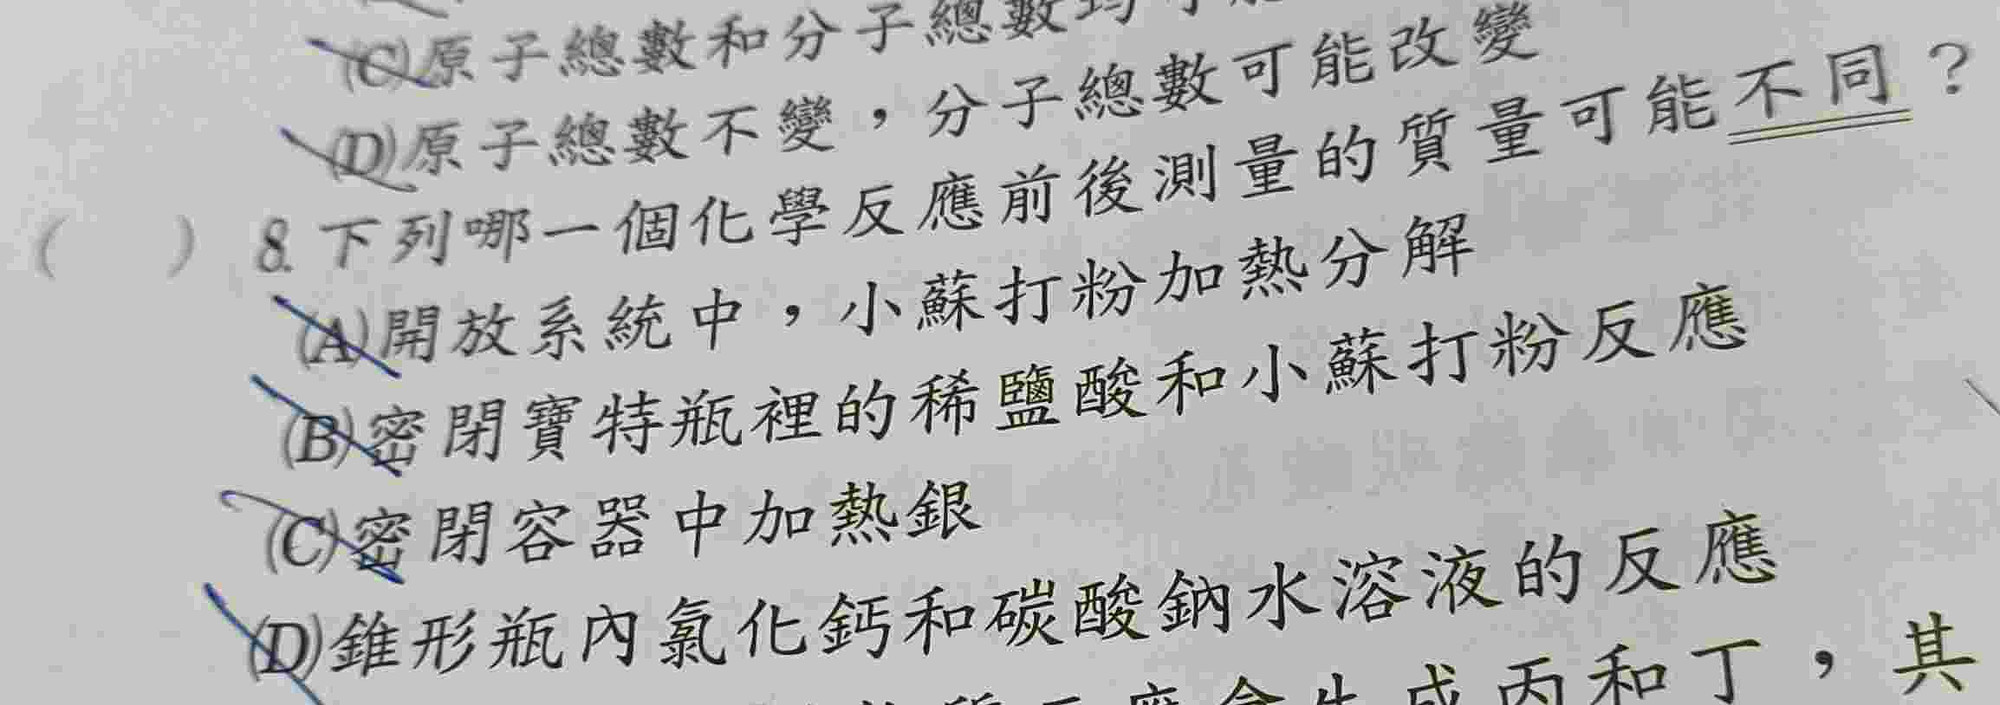 (C)原子總數和分子總數均可能
(D)原子總數不變，分子總數可能改變
(　　) 8.下列哪一個化學反應前後測量的質量可能不同？
(A)開放系統中，小蘇打粉加熱分解
(B)密閉寶特瓶裡的稀鹽酸和小蘇打粉反應
(C)密閉容器中加熱銀
(D)錐形瓶內氯化鈣和碳酸鈉水溶液的反應
生成丙和丁，其